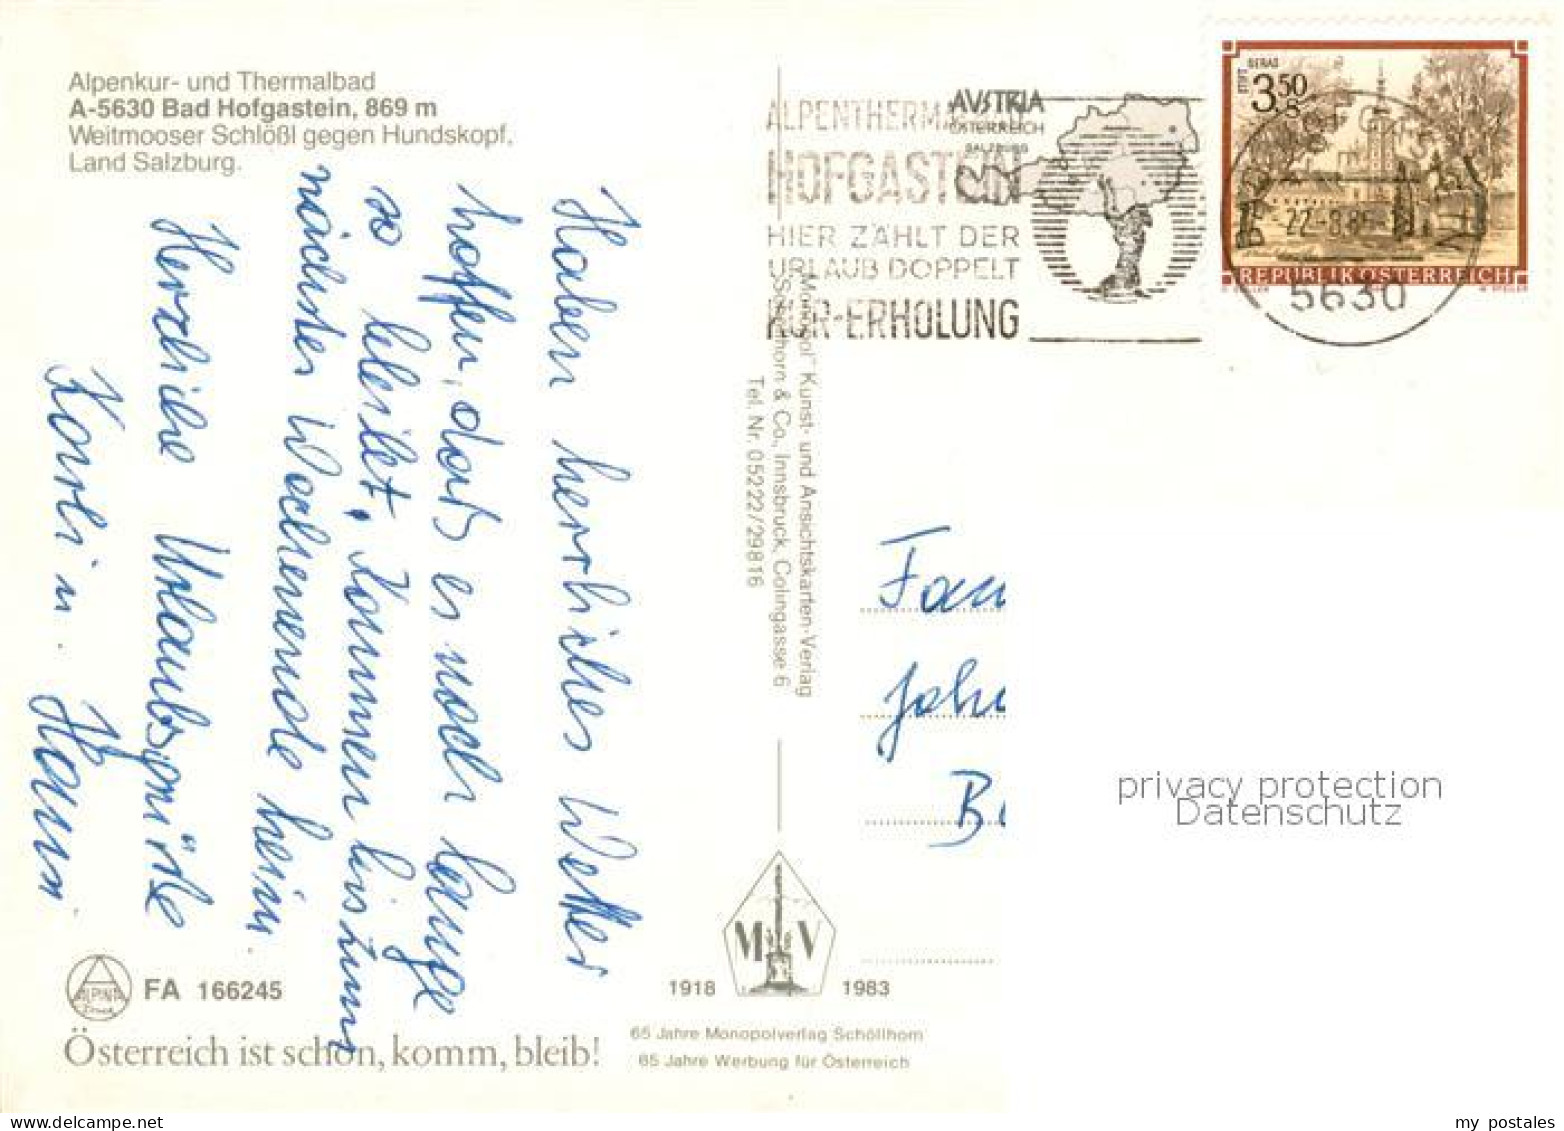 Alpenkur- und Thermalbad
A-5630 Bad Hofgastein, 869 m
Weitmooser Schlößl gegen Hundskopf,
Land Salzburg.
Haben herrliches Wetter
hoffen, daß es noch lange
so bleibt, kommen bis zum
nächsten Wochenende heim.
Herzliche Urlaubsgrüße
Karli u. Hanni
FA 166245
Österreich ist schön, komm, bleib!
"Monopol" Kunst- und Ansichtskarten-Verlag
Schöllhorn & Co., Innsbruck, Colingasse 6
Tel. Nr. 05222/29816
M V
1918 1983
65 Jahre Monopolverlag Schöllhorn
65 Jahre Werbung für Österreich
AUSTRIA
ÖSTERREICH
SALZBURG
HOFGASTEIN
HIER ZÄHLT DER
URLAUB DOPPELT
KUR-ERHOLUNG
STIFT GERAS
3.50
S
REPUBLIK ÖSTERREICH
5630
Fam
Joh
B
privacy protection
Datenschutz
my postales